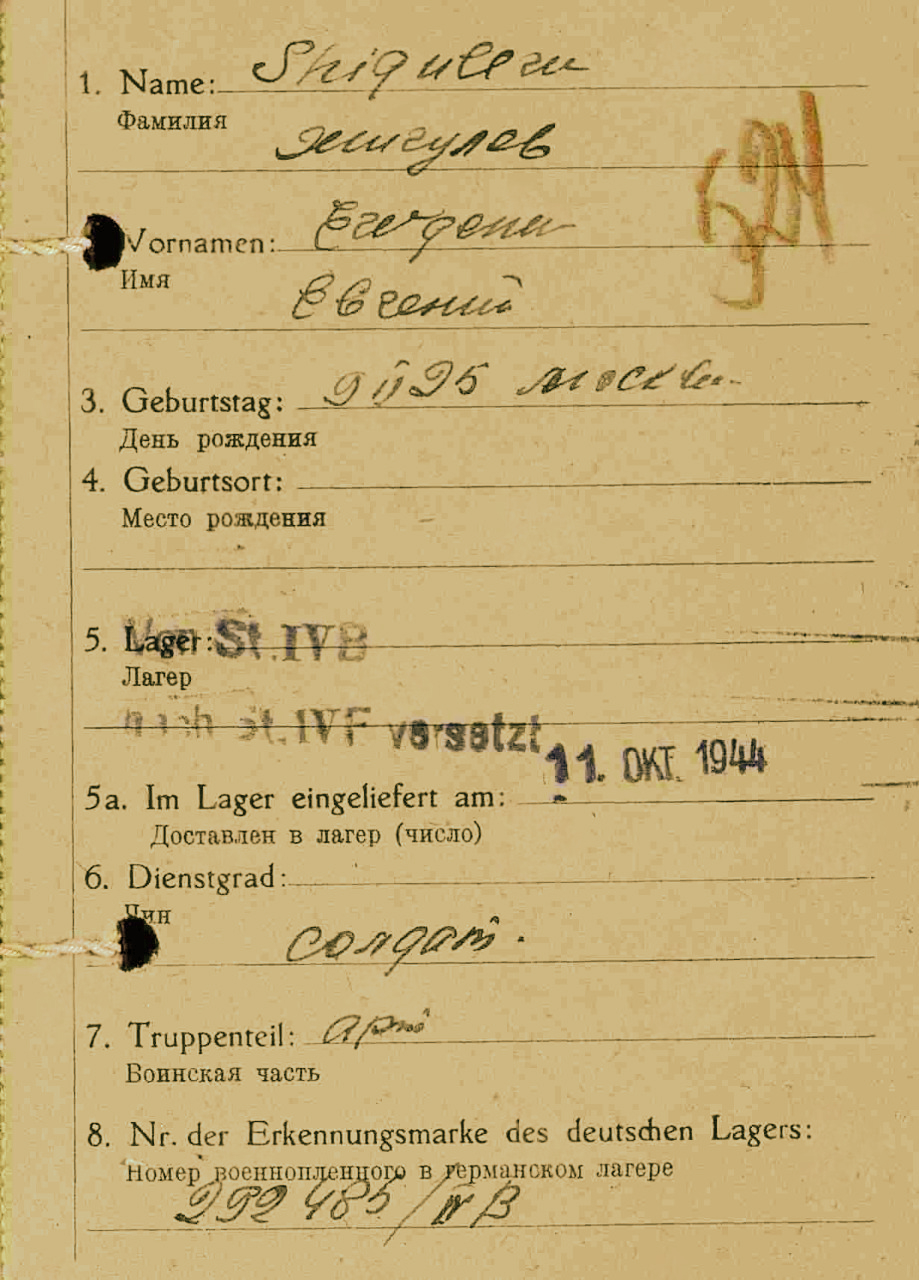 1. Name: Shigulew
Фамилия
Жигулев
Vornamen:
Имя
Евгений
3. Geburtstag: 9 II 25 Москва
День рождения
4. Geburtsort:
Место рождения
5. Lager: Von St. IV B
Лагер
nach St. IV F versetzt
11. OKT. 1944
5a. Im Lager eingeliefert am:
Доставлен в лагер (число)
6. Dienstgrad:
Чин
солдат.
7. Truppenteil: арт
Воинская часть
8. Nr. der Erkennungsmarke des deutschen Lagers:
Номер военнопленного в германском лагере
292 485/IV B